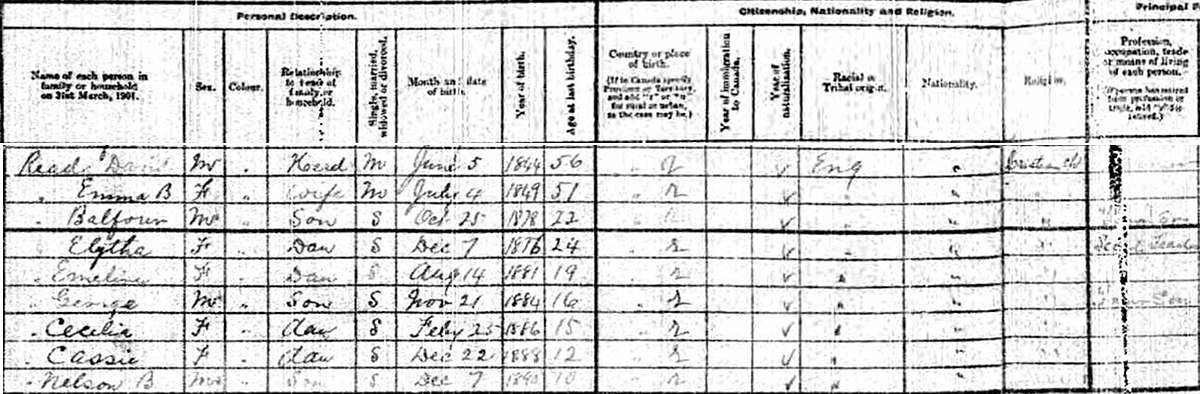 Personal Description. Citizenship, Nationality and Religion. Principal
Name of each person in family or household on 31st March, 1901. Sex. Colour. Relationship to head of family or household. Single, married, widowed or divorced. Month and date of birth. Year of birth. Age at last birthday. Country or place of birth. (If in Canada specify Province or Territory, and add "r" or "u" for rural or urban, as the case may be.) Year of immigration to Canada. Year of naturalization. Racial or Tribal origin. Nationality. Religion. Profession, occupation, trade or means of living of each person. (If person has retired from profession or trade, add "r" for retired.)
Read David M " Head M June 5 1844 56 " r √ Eng " Christian
" Emma B F " Wife M July 4 1849 51 " r √ " " "
" Balfour M " Son S Oct 25 1878 22 " r √ " " " Son
" Elytha F " Dau S Dec 7 1876 24 " r √ " "
" Emeline F " Dau S Aug 14 1881 19 " r √ " "
" George M " Son S Nov 21 1884 16 " r √ " " Son
" Cecilia F " dau S Feby 25 1886 15 " r √ "
" Cassie F " dau S Dec 22 1888 12 " r √ " "
" Nelson B M " Son S Dec 7 1890 10 " r √ " "